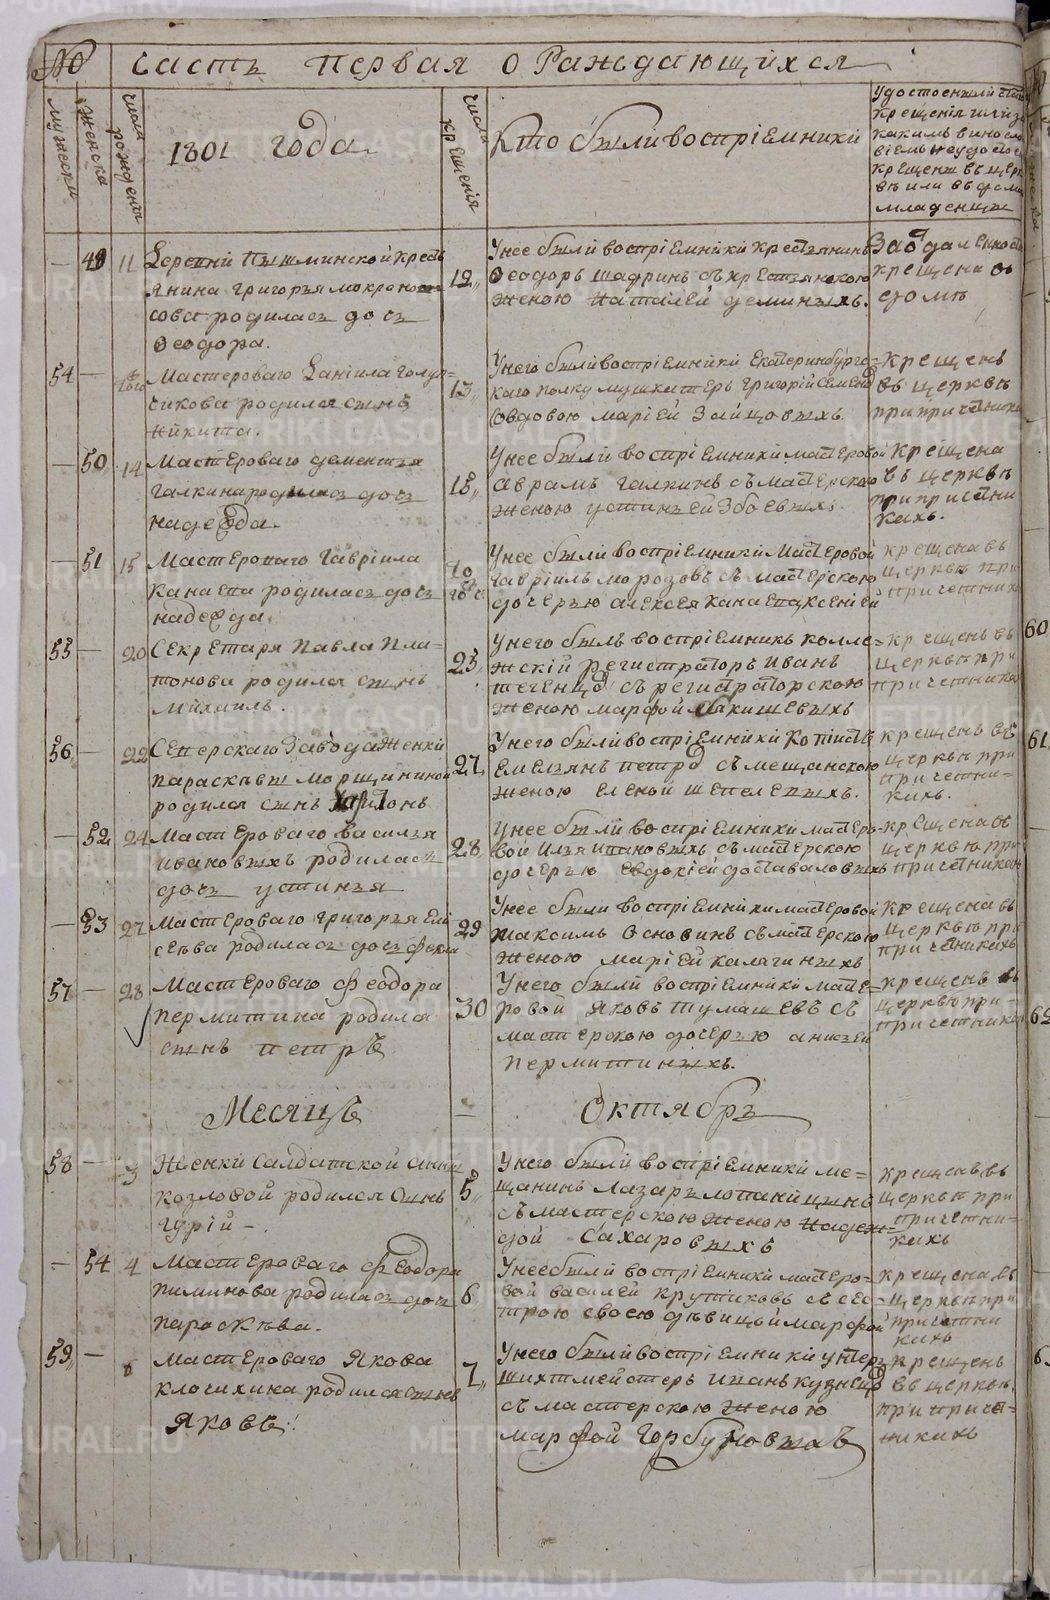 № Часть первая о Раждающихся
мужеска
женска
числа рождения
1801 года
числа крещения
Кто были воспрiемники
Удостоены ли
крещенiя или за
какимъ
крещены въ церк
вѣ или въ доме
младенцы
— 49 11 Деревни Пышминской кресть
янина Григорья мокроно
сова родилась дочь
Ѳеодора.
12,, Унее были воспрiемники крестьянинъ
Ѳеодоръ Шадринъ съ крестьянскою
женою Наталей деминыхъ.
За отдаленност
крещена въ
доме
54 — Мастероваго Данiила голун-
чикова родился сынъ
Никита.
13,, Унего были воспрiемники Екатеринбургс=
каго полку мушкатеръ григорiй Семенов
совдовою марiей Зайцовыхъ
крещенъ
въ церквѣ
при причетника
— 50, 14 Мастероваго дементья
галкина родилась дочь
надежда.
15,, Унее были воспрiемники мастеровой
аврамъ галкинъ съ мастерскою
женою устиньей Збоевыхъ.
крещена
въ церквѣ
при причетни
кахъ.
— 51 15 Мастероваго гаврiила
канаева родилась дочь
надежда.
Унее были воспрiемники мастеровой
гаврiилъ морозовъ съ мастерскою
дочерью алексея канаева ксенiей
крещена въ
церквѣ при
причетник
55 — 20 Секретаря павла пла-
тонова родился сынъ
михаилъ.
25,, Унего былъ воспрiемникъ колле=
жскiй регистраторъ иванъ
съ регистраторскою
женою марфой
крещенъ въ
церквѣ при
причетника
56, — 22 Сысерскаго завода женки
параскевы морщининой
родился сынъ
27, Унего были воспрiемники копiистъ
емельянъ петров съ мещанскою
женою еленой шепелевыхъ.
крещенъ въ
церквѣ при
причетни=
кахъ.
— 52, 24 Мастероваго василья
ивановыхъ родилась
дочь устинья
28, Унее были воспрiемники мастеро-
вой илья ивановыхъ съ мастерскою
дочерью евдокiей доставаловыхъ
крещена въ
церквѣ при
причетникахъ
— 53 27 Мастероваго григорья ели
сеева родилась дочь фекла
29 Унее были воспрiемники мастеровой
максимъ Основинъ съ мастерскою
женою марiей калягиныхъ
крещена въ
церквѣ при
причетникахъ
57 — 28 Мастероваго феодора
пермитина родился
сынъ петръ
30 Унего были воспрiемники масте-
ровой яковъ тумашевъ съ
мастерскою дочерью анисьей
пермитиныхъ.
крещенъ въ
церквѣ при-
причетниках
Месяцъ — Октябрь
58 — 3 Женки салдатской анны
козловой родился сынъ
гурiй -.
5,, Унего были воспрiемники ме=
щанинъ лазарь
съ мастерскою женою надеж=
дой Сахаровыхъ
крещенъ въ
церквѣ при
причетни=
кахъ
— 54 4 Мастероваго феодора
пиминова родилась дочь
параскева.
6,, Унее были воспрiемники мастеро-
вой василей крутиковъ съ сес=
трою своею девицой марфой
крещена въ
церквѣ при
причетни
кахъ
59,, — 6 Мастероваго якова
клочихина родился сынъ
яковъ.
7,, Унего были воспрiемники унтеръ
шихтмейстеръ иванъ кузнецов
съ мастерскою женою
марфой горбуновыхъ
крещенъ
въ церквѣ
при причет=
никахъ
60
61